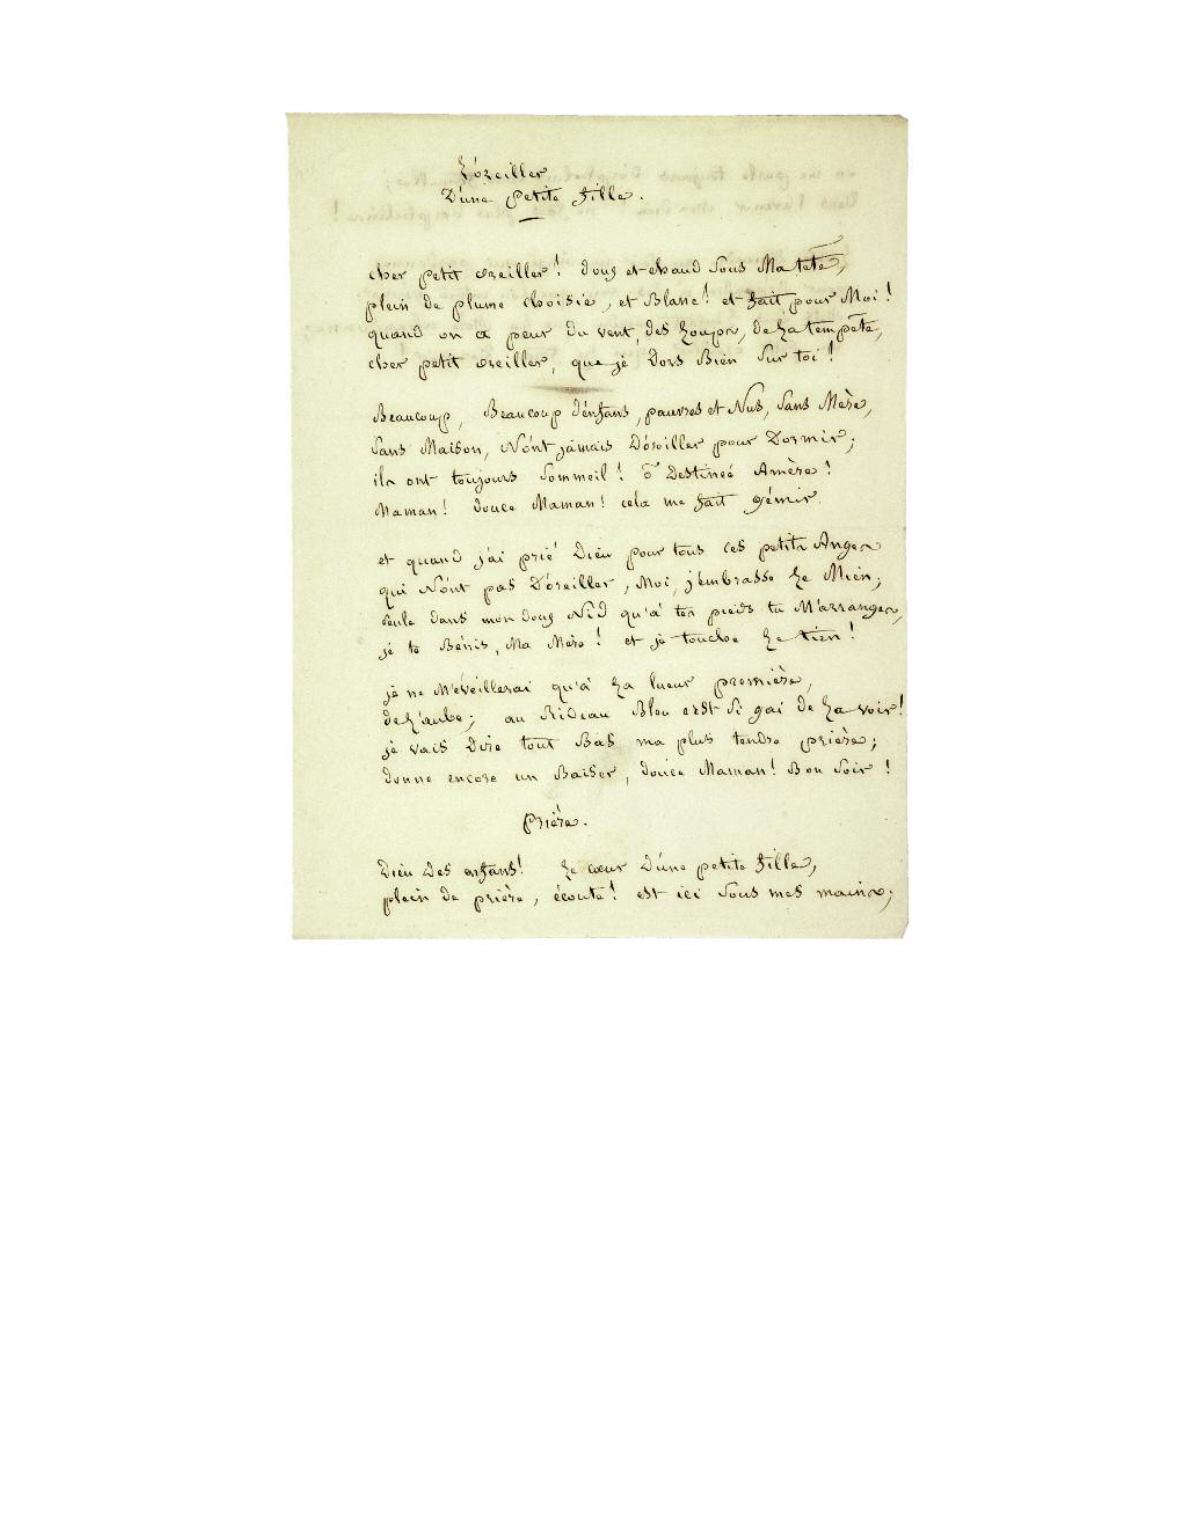 L'oreiller
D'une petite fille.
cher petit oreiller! doux et chaud sous Ma tête,
plein de plume choisie, et Blanc! et fait pour Moi!
quand on a peur du vent, des Loups, de La tempête,
cher petit oreiller, que je Dors Bien sur toi!
Beaucoup, Beaucoup d'enfans, pauvres et Nus, sans Mère,
sans Maison, N'ont jamais D'oreiller pour Dormir;
ils ont toujours sommeil! ô Destineé Amère!
Maman! douce Maman! cela me fait gémir.
et quand j'ai prié Dieu pour tous ces petits Anges
qui N'ont pas D'oreiller, Moi, j'embrasse Le Mien;
seule dans mon doux Nid qu'à tes pieds tu M'arranges,
je te Bénis, Ma Mère! et je touche Le tien!
je ne M'éveillerai qu'à La lueur première,
de L'aube; au Rideau Bleu c'est si gai de La voir!
je vais Dire tout Bas ma plus tendre prière;
donne encore un Baiser, douce Maman! Bon soir!
Prière.
Dieu Des enfans! Le cœur D'une petite fille,
plein de prière, écoute! est ici sous mes mains;